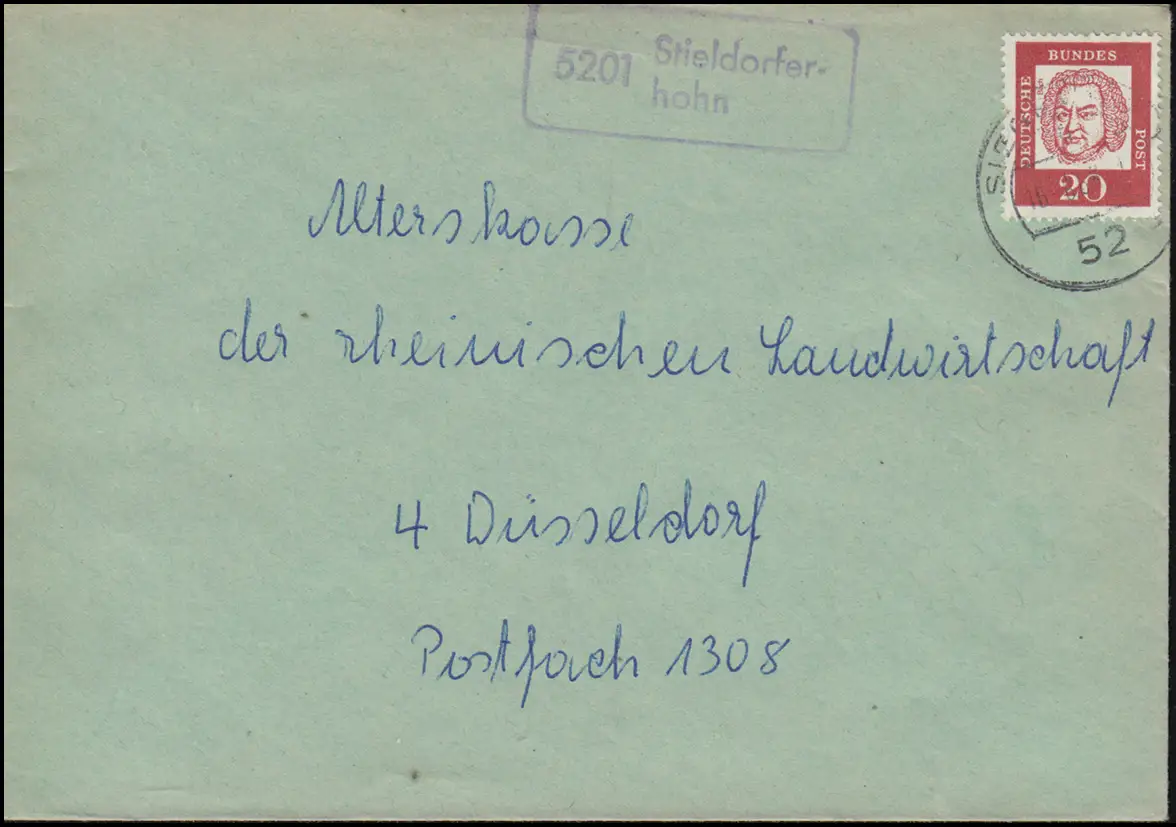 5201 Stieldorfer-
hohn
BUNDES
DEUTSCHE
POST
20
52
Alterskasse
der rheinischen Landwirtschaft
4 Düsseldorf
Postfach 1308